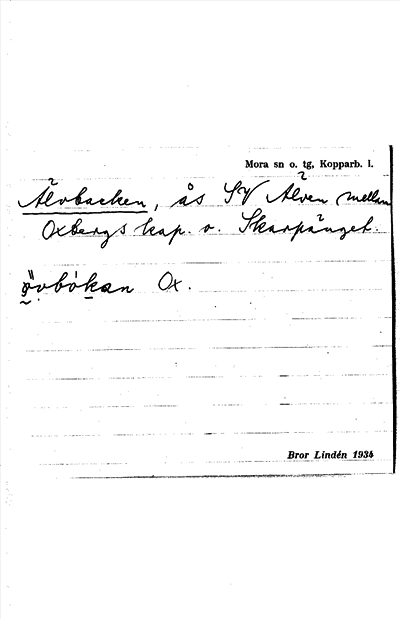 Mora sn o. tg, Kopparb. l.
Älvbacken, ås SV Älven mellan
Oxbergs kap. o. Skarpänget.
övbókan Ox.
Bror Lindén 1934